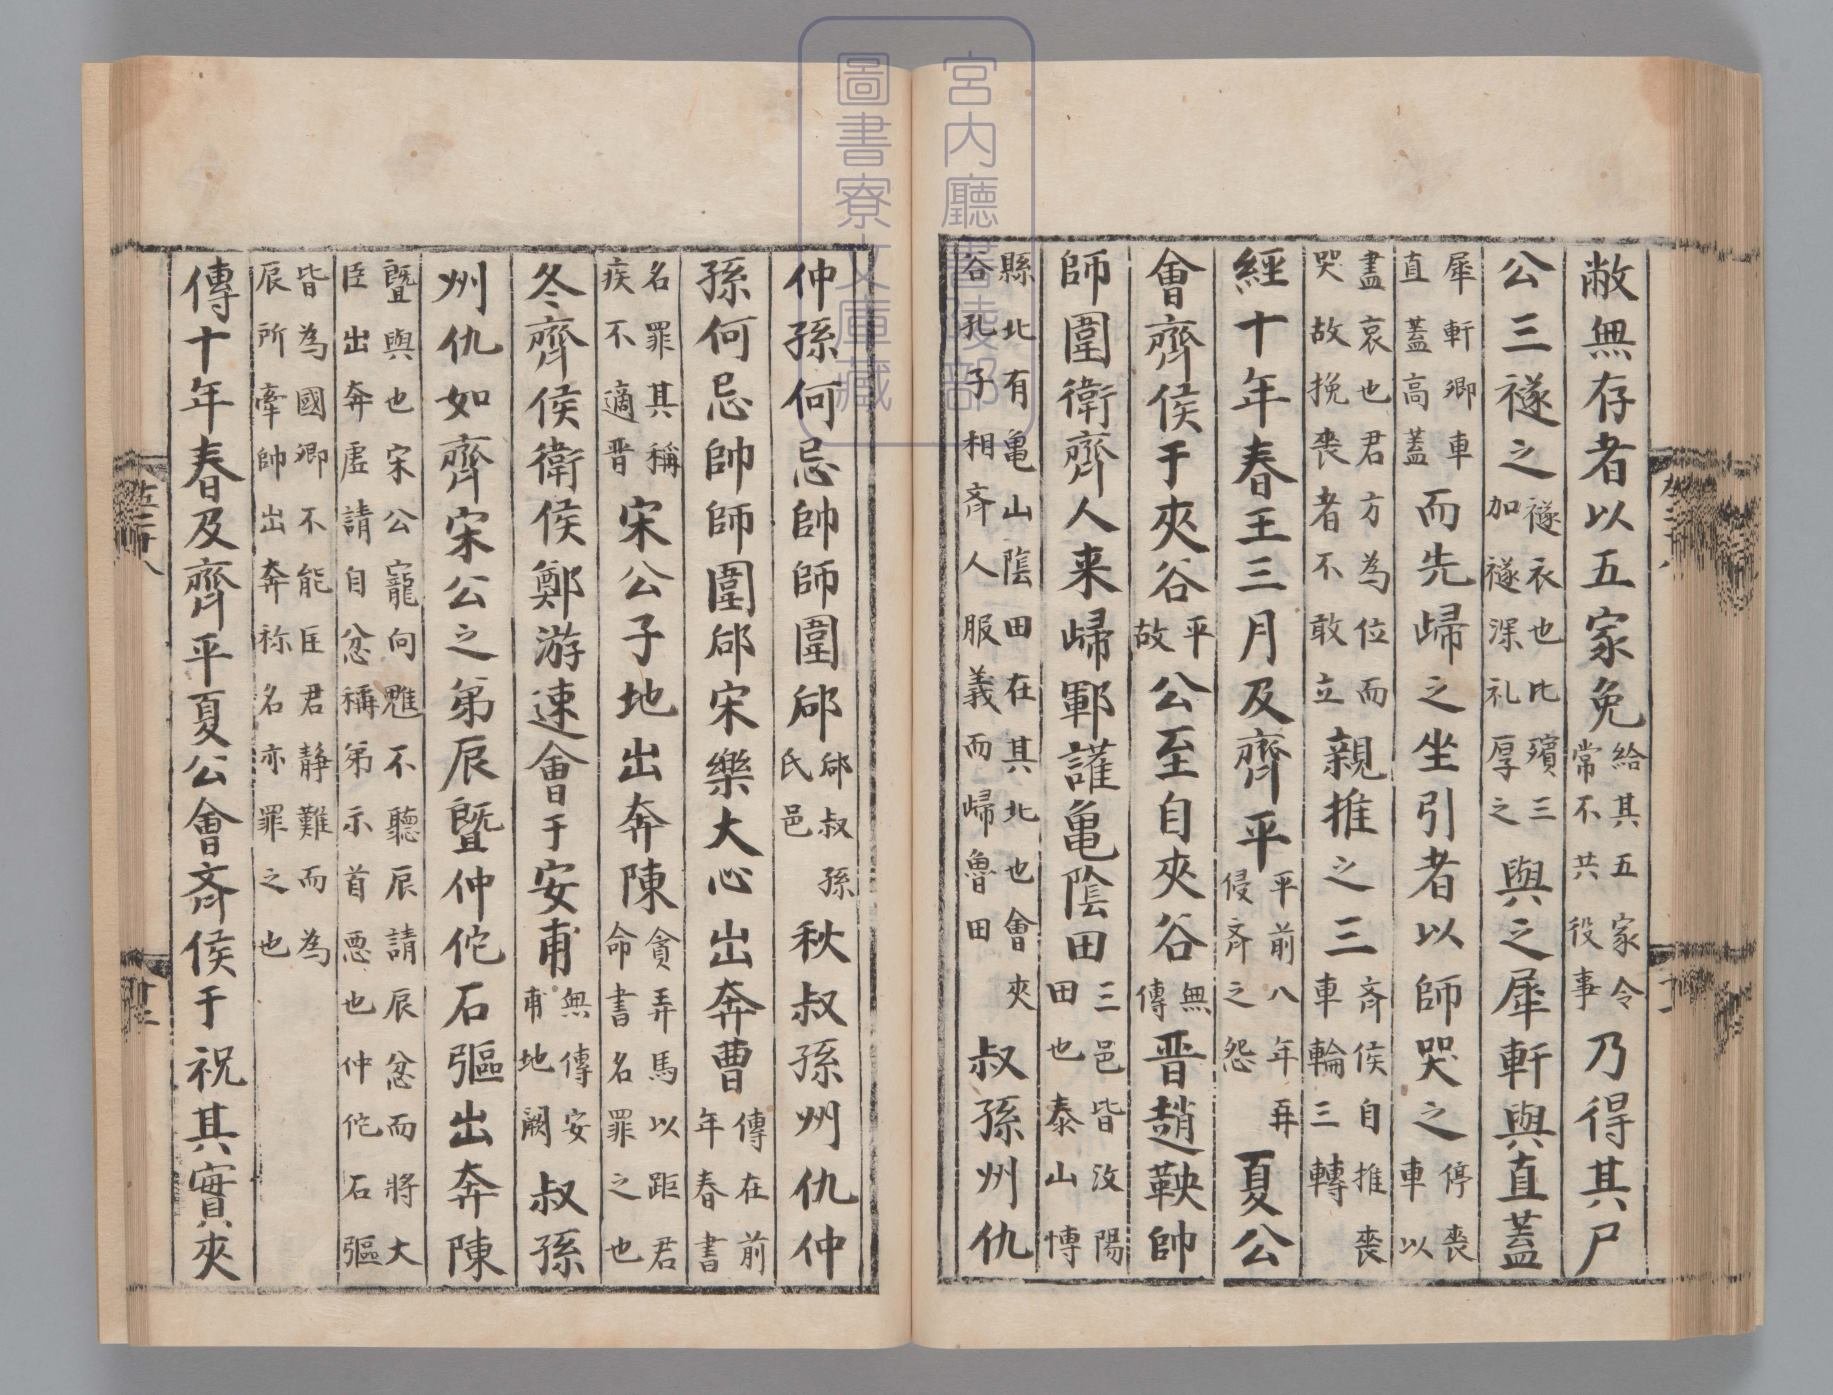 敝無存者以五家免給其五家令常不共役事乃得其尸
公三襚之襚衣也比殯三加襚深礼厚之與之犀軒與直蓋
犀軒卿車直蓋高蓋而先歸之坐引者以師哭之停喪車以
盡哀也君方為位而哭故挽喪者不敢立親推之三斉侯自推喪車輪三轉
經十年春王三月及齊平平前八年再侵斉之怨夏公
會齊侯于夾谷平故公至自夾谷無傳晋趙鞅帥
師圍衛齊人来歸鄆讙亀陰田三邑皆汶陽田也泰山博
縣北有亀山陰田在其北也會夾谷孔子相斉人服義而歸魯田叔孫州仇
仲孫何忌帥師圍郈郈叔孫氏邑秋叔孫州仇仲
孫何忌帥師圍郈宋樂大心出奔曹傳在前年春書
名罪其稱疾不適晋宋公子地出奔陳貪弄馬以距君命書名罪之也
冬齊侯衛侯鄭游速會于安甫無傳安甫地闕叔孫
州仇如齊宋公之弟辰曁仲佗石彄出奔陳
曁與也宋公寵向魋不聽辰請辰忿而將大臣出奔虛請自忿稱弟示首惡也仲佗石彄
皆為國卿不能匡君静難而為辰所牽帥出奔称名亦罪之也
傳十年春及齊平夏公會斉侯于祝其實夾
宮内廳書陵部
圖書寮文庫藏